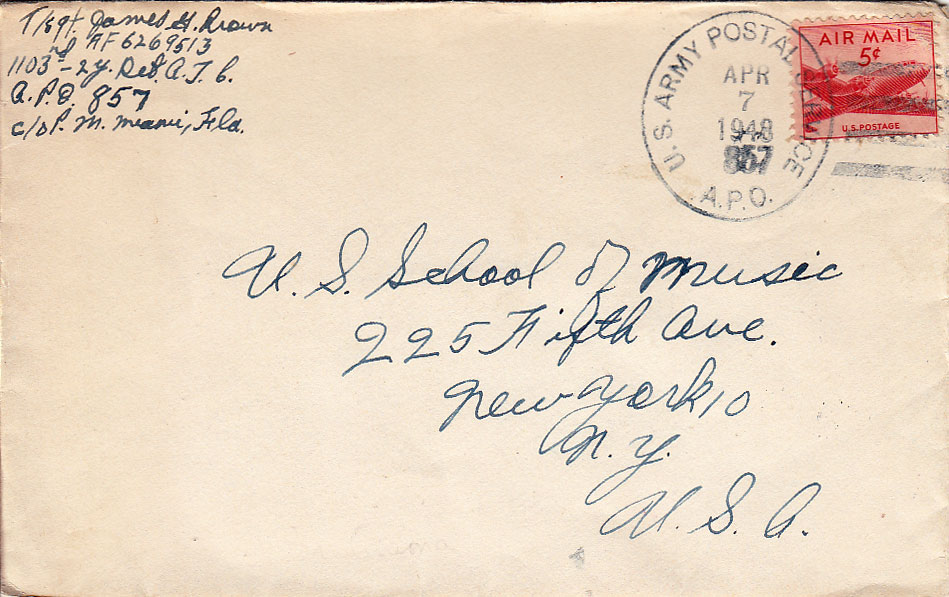 T/Sgt. James H. Brown
AF 6269513
1103nd - 2y. Det. A.T.C.
A.P.O. 857
c/o P.M. Miami, Fla.
U.S. ARMY POSTAL SERVICE
APR
7
1948
857
A.P.O.
AIR MAIL
5¢
U.S. POSTAGE
U.S. School of Music
225 Fifth Ave.
New York 10
N.Y.
U.S.A.